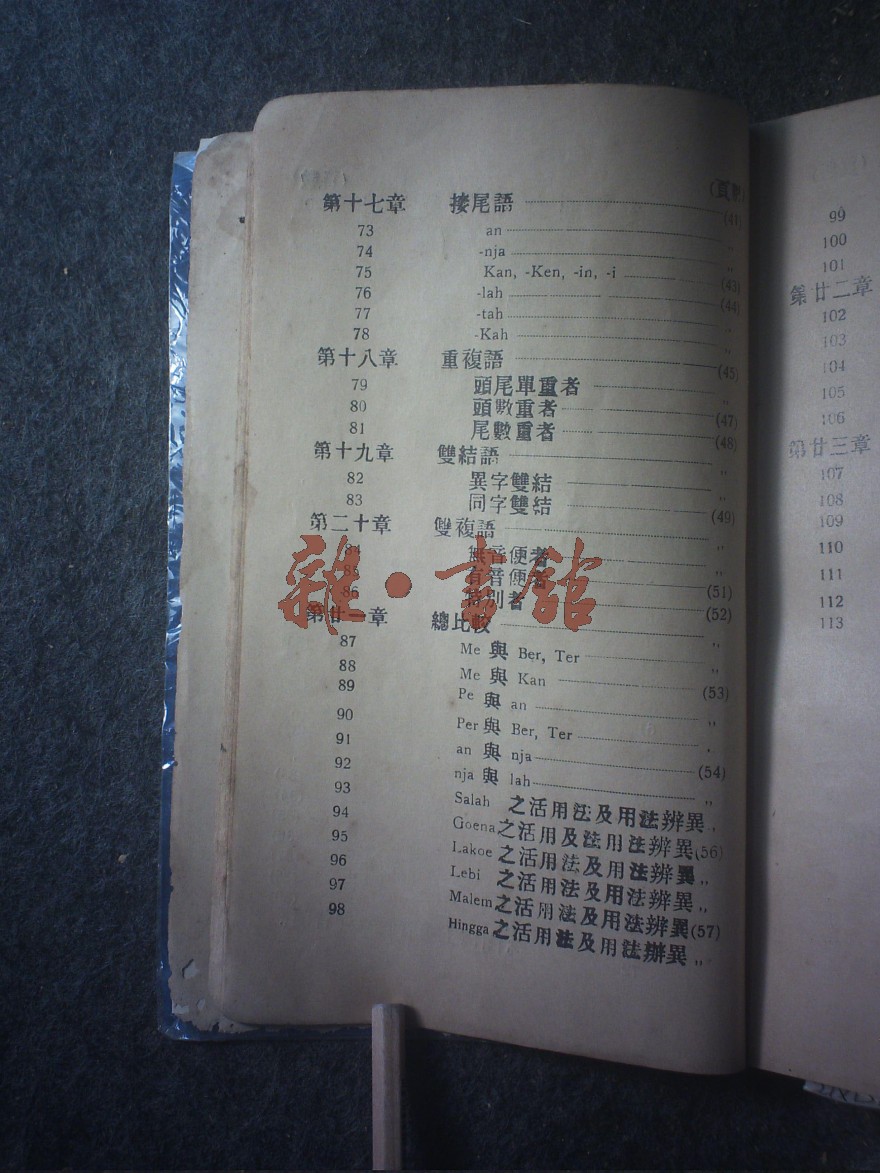 (頁數)
第十七章 接尾語 (41)
73 an ,,
74 -nja ,,
75 Kan, -Ken, -in, -i (43)
76 -lah (44)
77 -tah
78 -Kah ,,
第十八章 重複語 (45)
79 頭尾單重者 ,,
80 頭數重者 (47)
81 尾數重者 (48)
第十九章 雙結語 ,,
82 異字雙結 ,,
83 同字雙結 (49)
第二十章 雙複語 ,,
84 無音便者 ,,
85 有音便者 (51)
86 特別者 (52)
第廿一章 總比較 ,,
87 Me 與 Ber, Ter
88 Me 與 Kan (53)
89 Pe 與 an ,,
90 Per 與 Ber, Ter
91 an 與 nja (54)
92 nja 與 lah ,,
93 Salah 之活用法及用法辨異 ,,
94 Goena之活用及法用法辨異(56)
95 Lakoe 之活用法及用法辨異 ,,
96 Lebi 之活用法及用法辨異 ,,
97 Malem之活用法及用法辨異(57)
98 Hingga之活用法及用法辦異 ,,
雜·書館
99
100
101
第廿二章
102
103
104
105
106
第廿三章
107
108
109
110
111
112
113